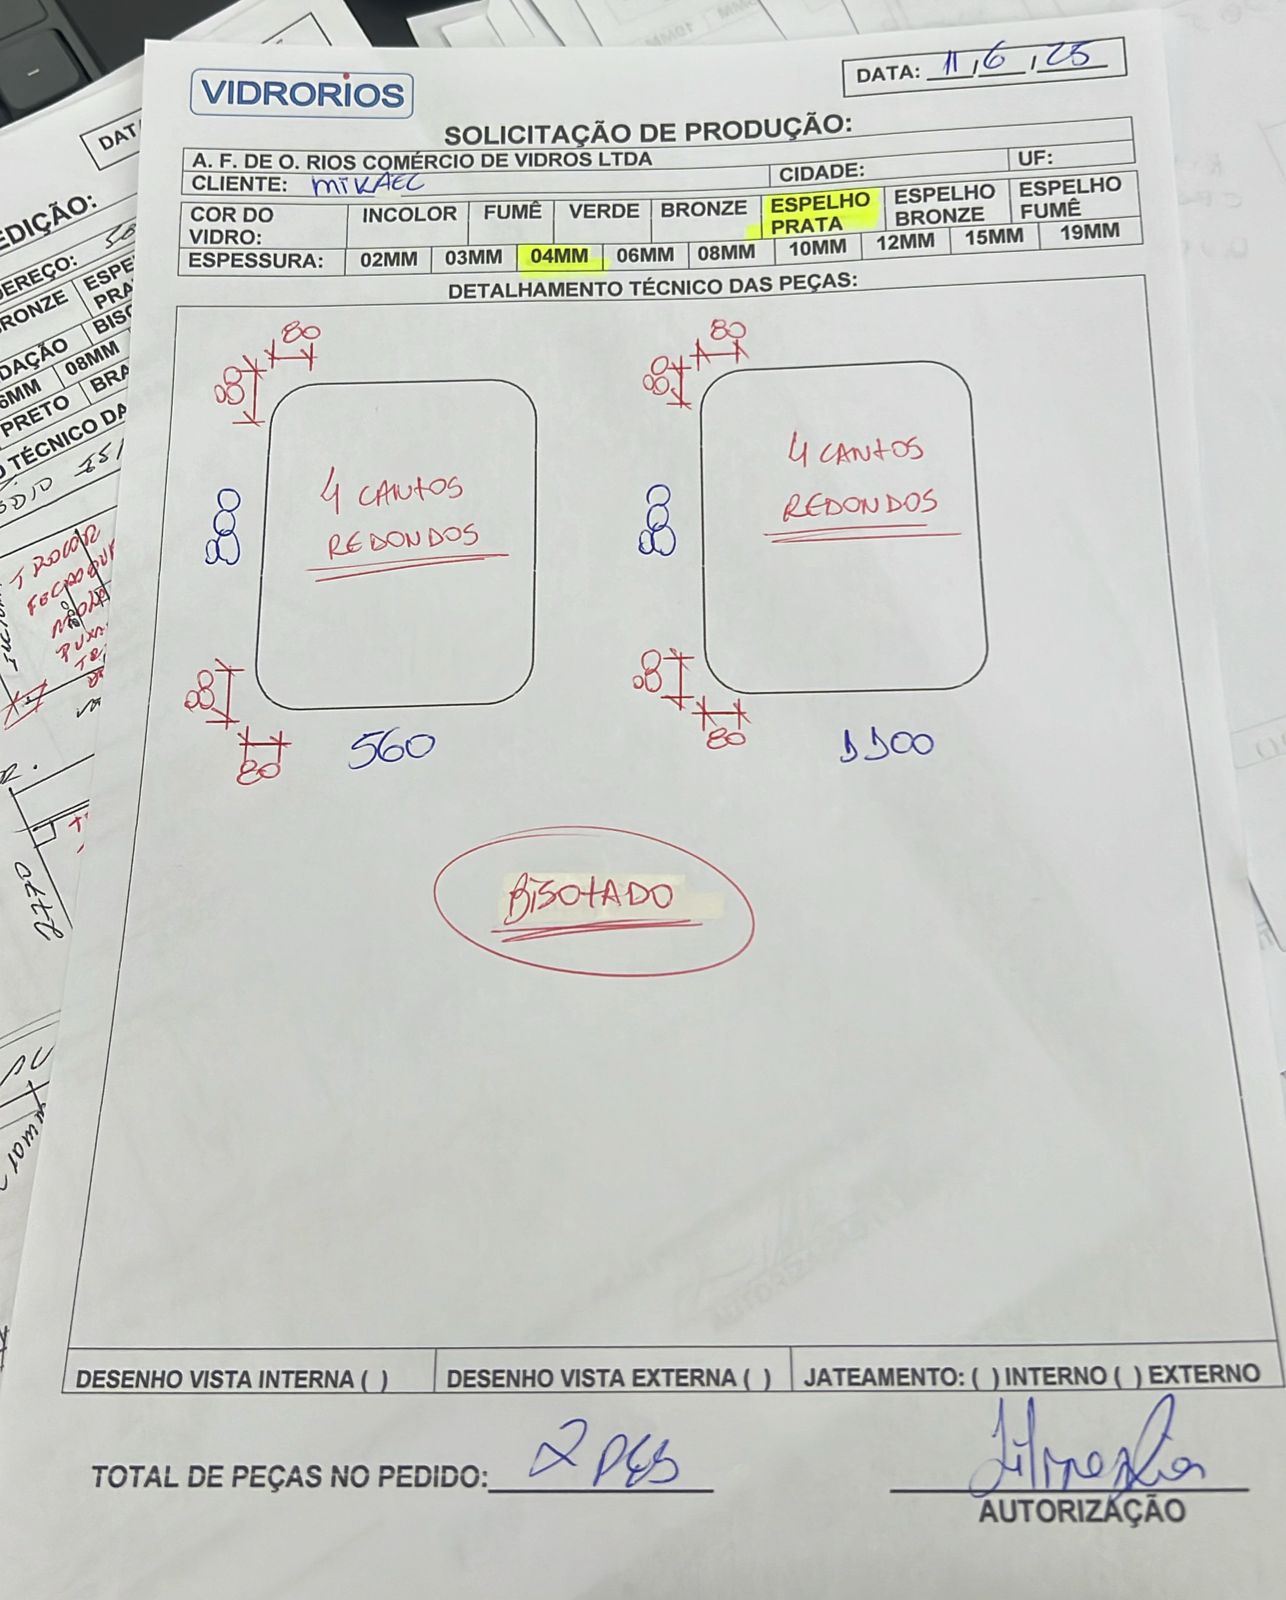 VIDRORIOS
DATA: 11,6,25
SOLICITAÇÃO DE PRODUÇÃO:
A. F. DE O. RIOS COMÉRCIO DE VIDROS LTDA
CLIENTE: MIKAEL
CIDADE:
UF:
COR DO VIDRO:
INCOLOR
FUMÊ
VERDE
BRONZE
ESPELHO PRATA
ESPELHO BRONZE
ESPELHO FUMÊ
ESPESSURA: 02MM 03MM 04MM 06MM 08MM 10MM 12MM 15MM 19MM
DETALHAMENTO TÉCNICO DAS PEÇAS:
80
80
4 CANTOS
REDONDOS
800
80
80
560
80
80
4 CANTOS
REDONDOS
800
80
80
1100
BISOTADO
DESENHO VISTA INTERNA ( )
DESENHO VISTA EXTERNA ( )
JATEAMENTO: ( ) INTERNO ( ) EXTERNO
TOTAL DE PEÇAS NO PEDIDO: 2 PÇS
AUTORIZAÇÃO
EDIÇÃO:
EREÇO:
RONZE
DAÇÃO
6MM
08MM
PRETO
BRA
TÉCNICO DA
TROCAR
2770